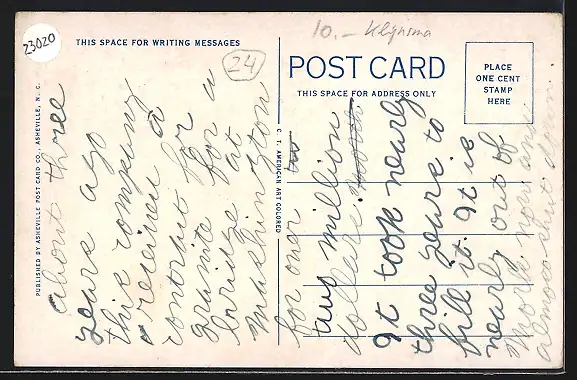 23020
10.-
THIS SPACE FOR WRITING MESSAGES
24
POST CARD
THIS SPACE FOR ADDRESS ONLY
PLACE
ONE CENT
STAMP
HERE
PUBLISHED BY ASHEVILLE POST CARD CO., ASHEVILLE, N. C.
C. T. AMERICAN ART COLORED
about three
years ago
this company
received a
contract for
granite for a
bridge at
Washington
for over two
two million
dollars.
It took nearly
three years to
fill it. It is
nearly out of
almost shut down.